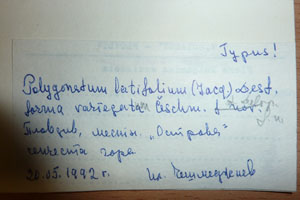 Typus!
Polygonatum latifolium (Jacq.) Desf.
forma variegata Češchm. f. nov.
Пловдив, местн. „Острова"
сенчеста гора
20.05.1992 г. Ил. Чешмеджиев